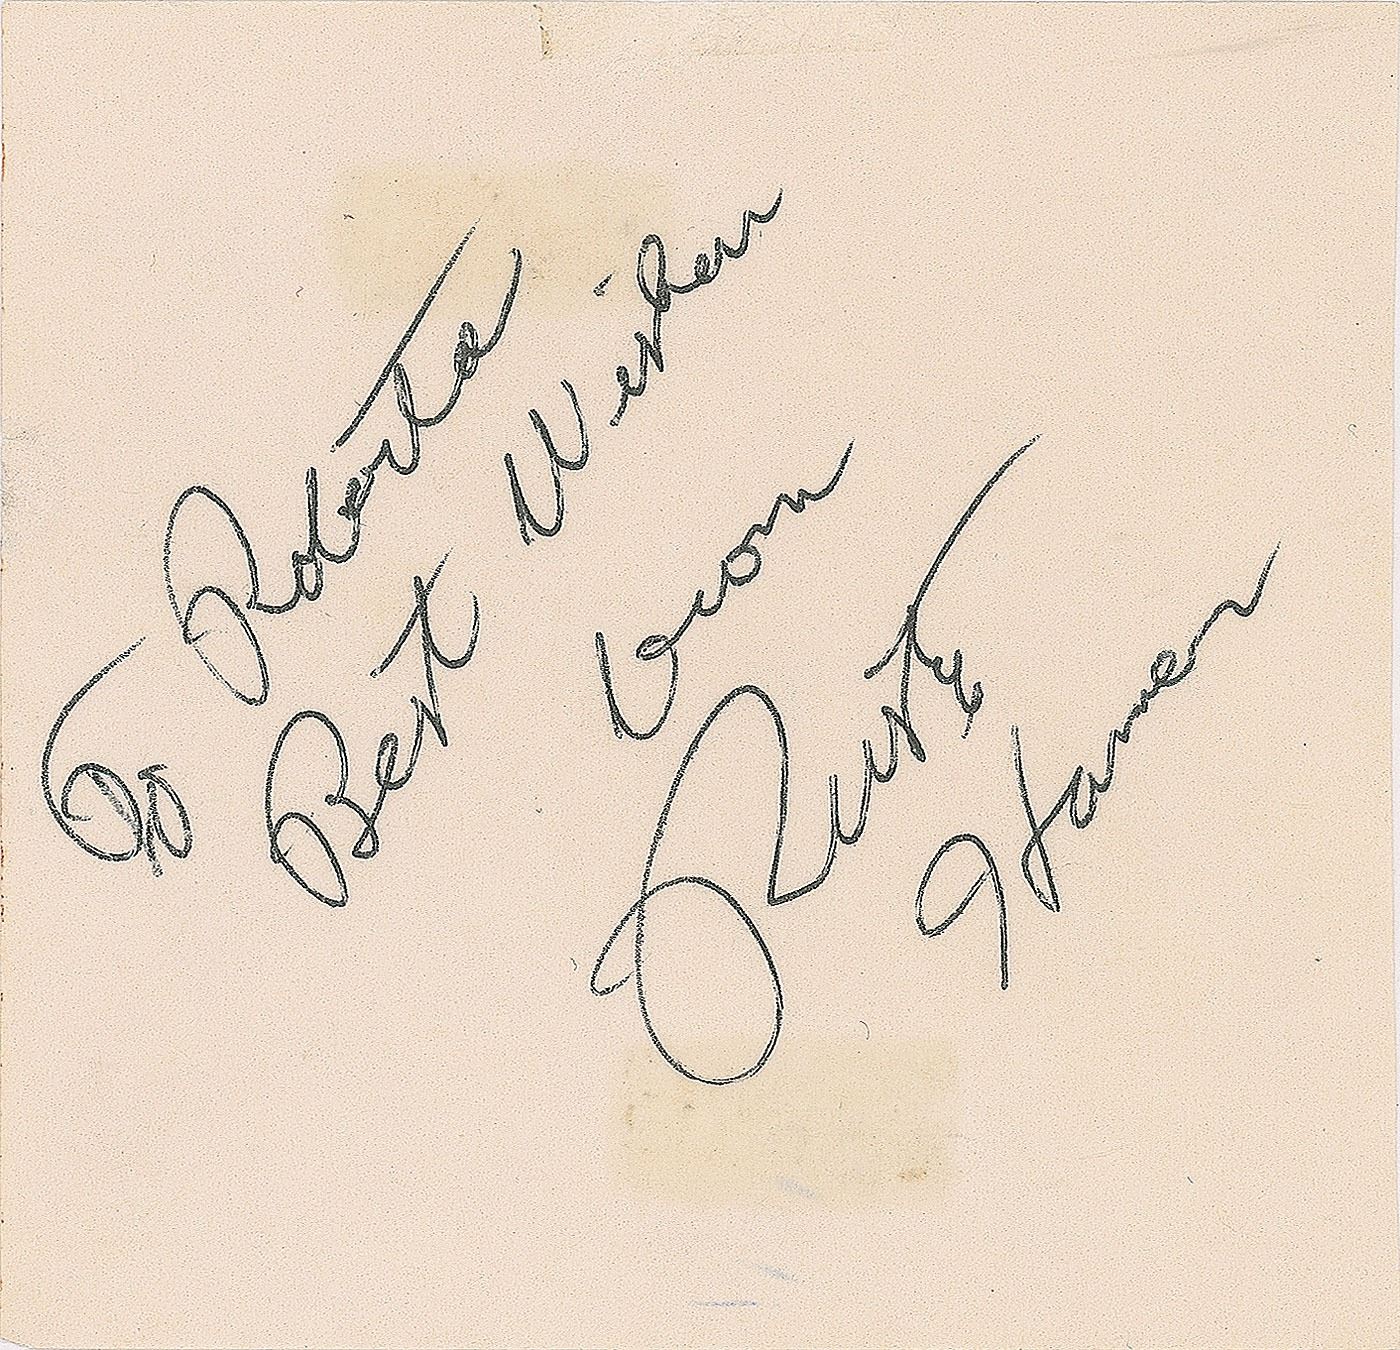 To Roberta
Best Wishes
From
Rusty
Hamer